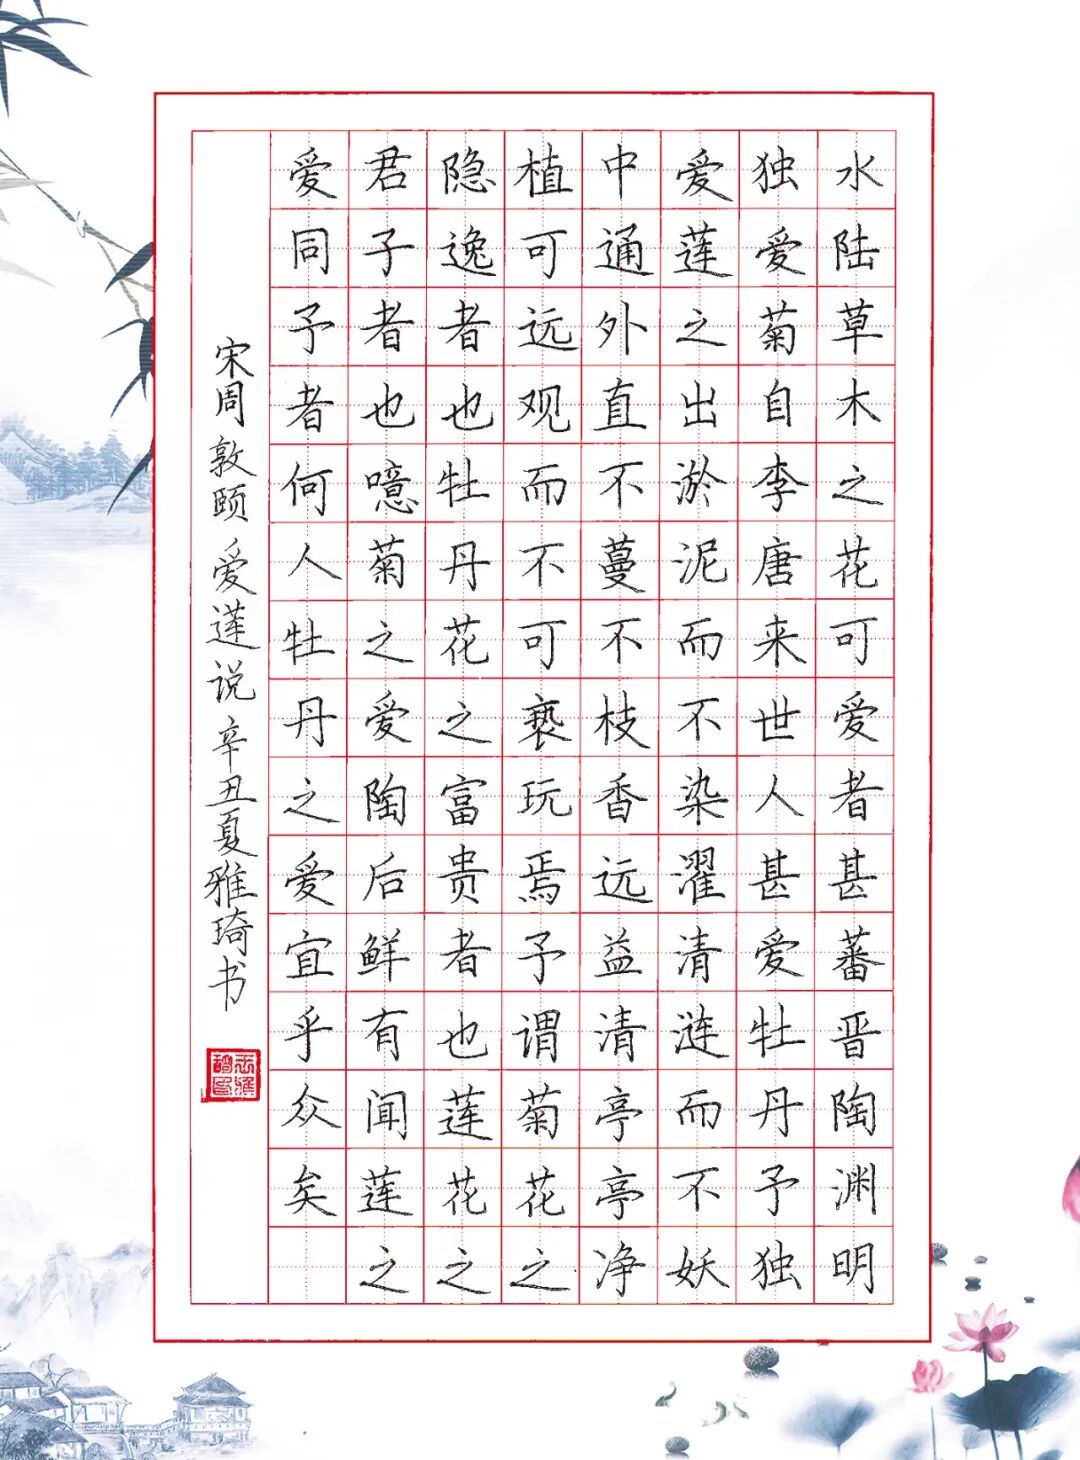 水陆草木之花可爱者甚蕃晋陶渊明
独爱菊自李唐来世人甚爱牡丹予独
爱莲之出淤泥而不染濯清涟而不妖
中通外直不蔓不枝香远益清亭亭净
植可远观而不可亵玩焉予谓菊花之
隐逸者也牡丹花之富贵者也莲花之
君子者也噫菊之爱陶后鲜有闻莲之
爱同予者何人牡丹之爱宜乎众矣
宋周敦颐爱莲说辛丑夏雅琦书